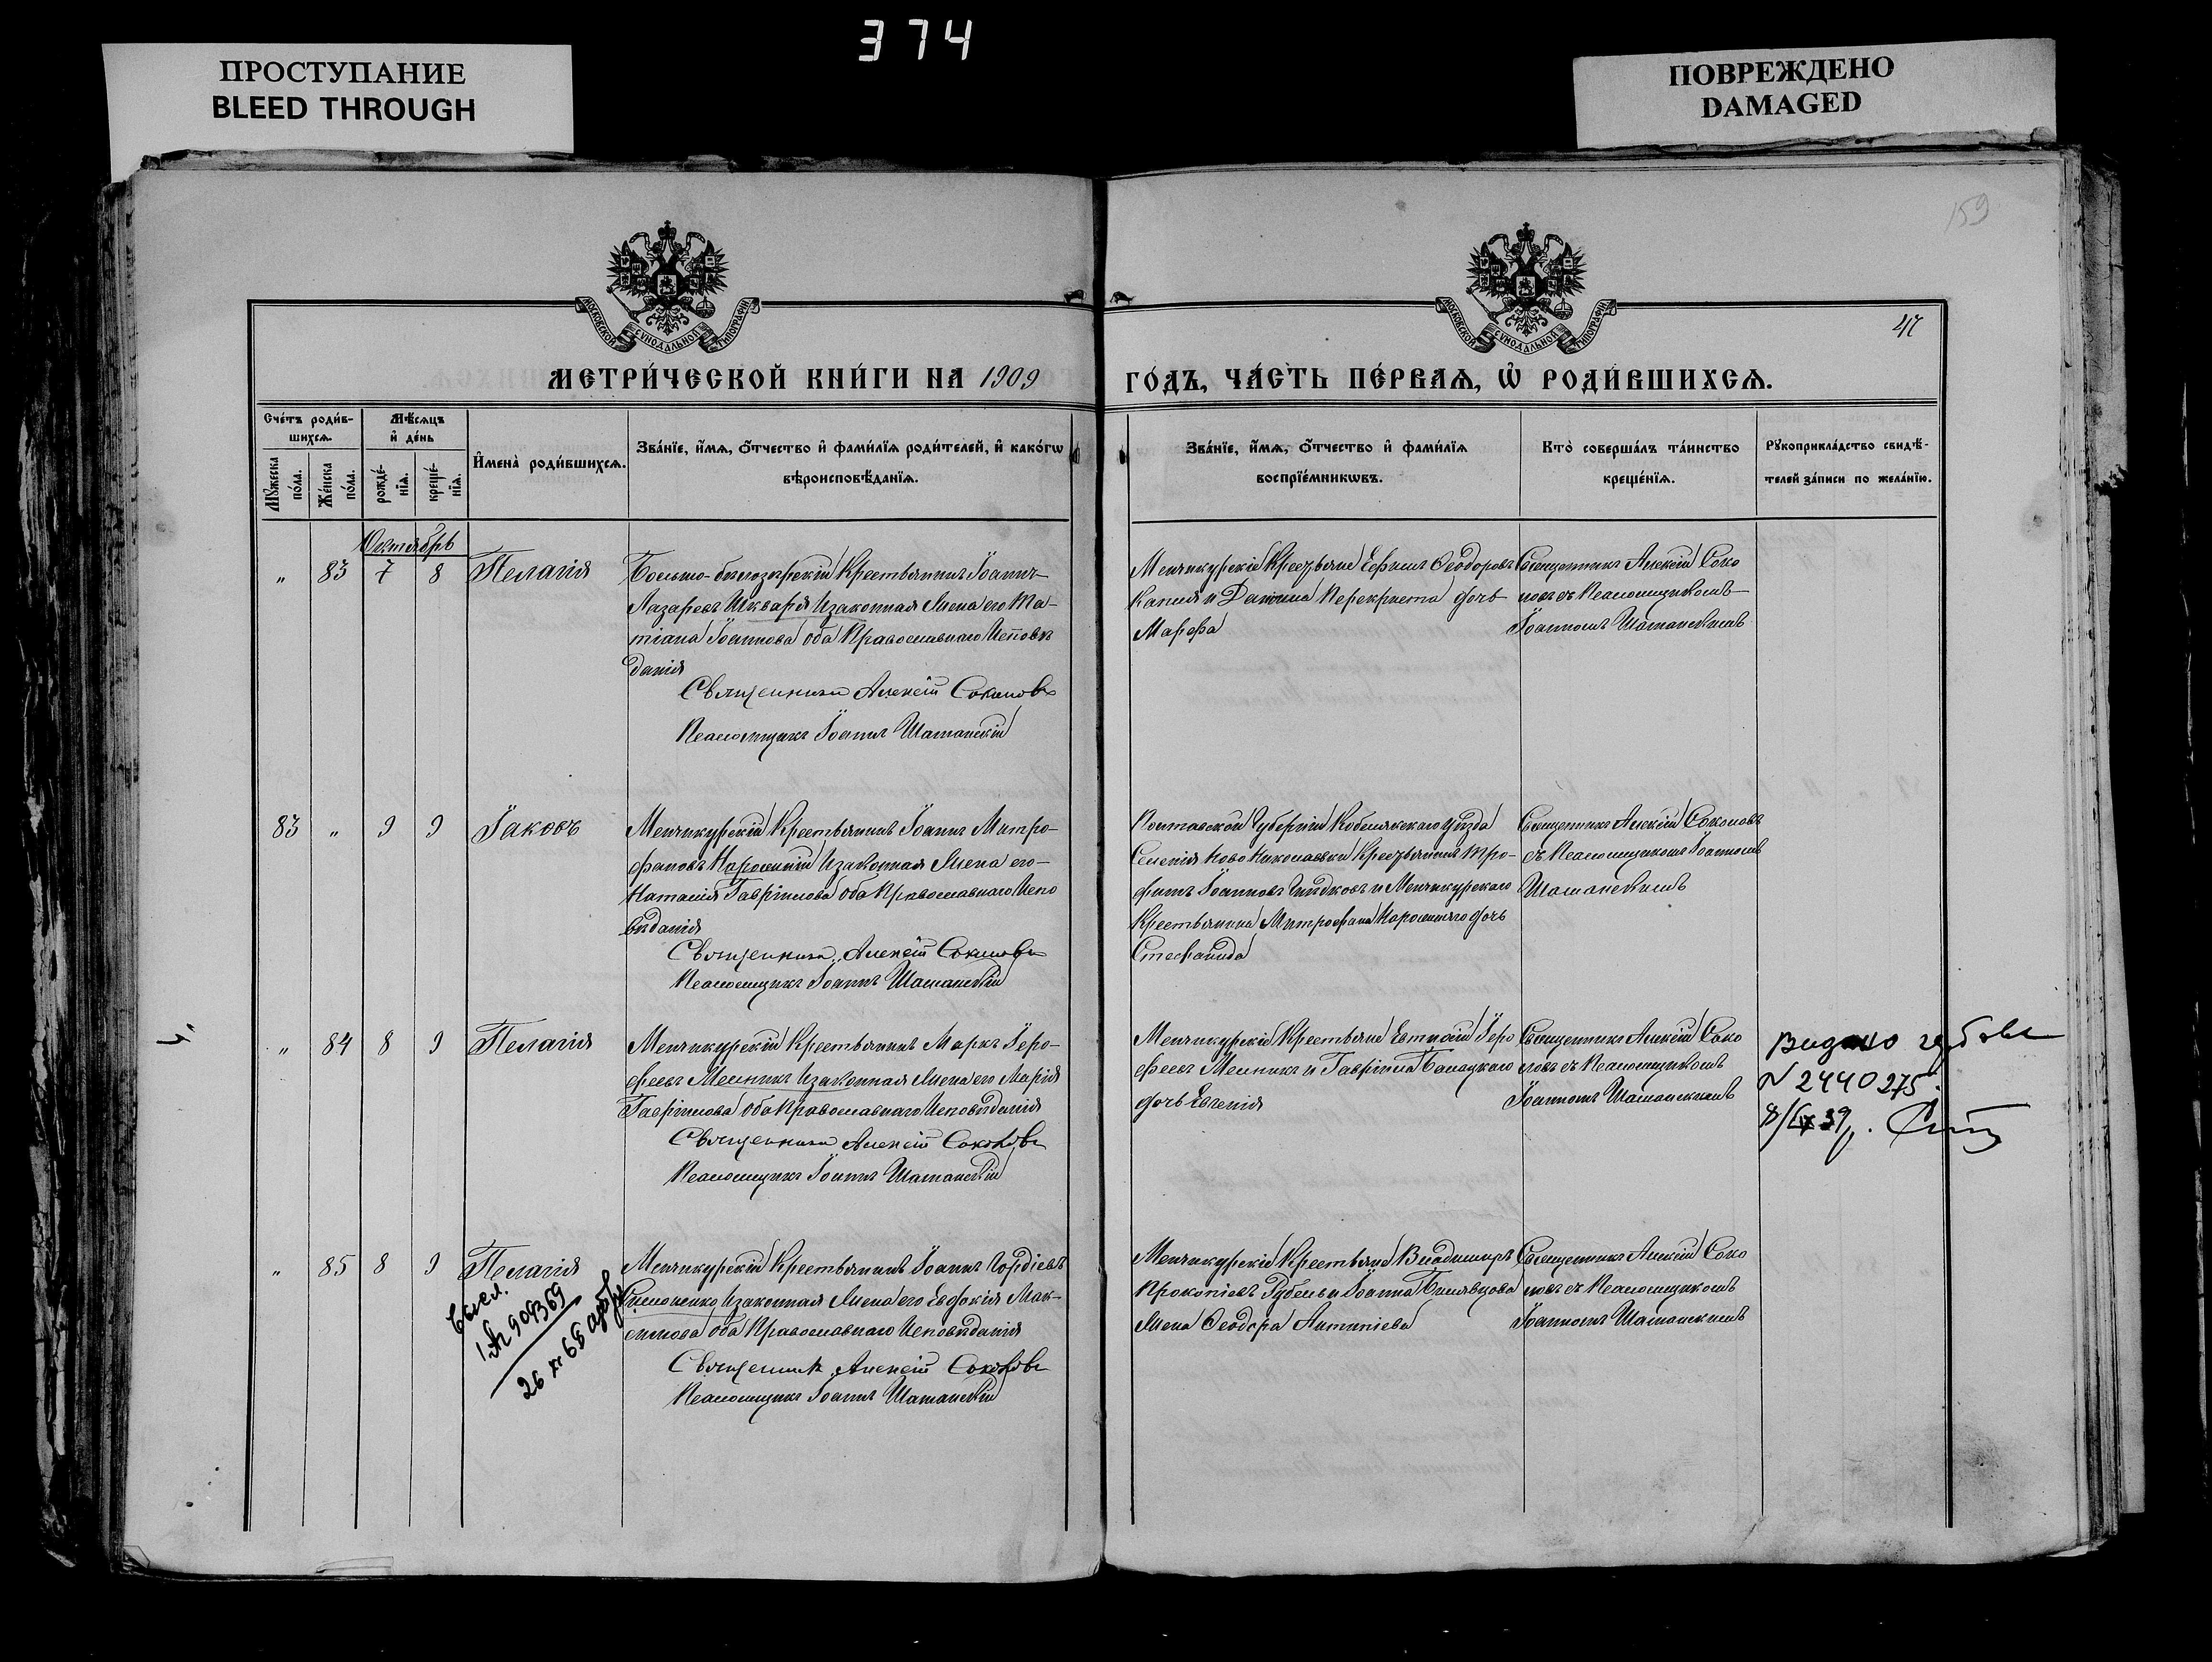 374
ПРОСТУПАНИЕ
BLEED THROUGH
ПОВРЕЖДЕНО
DAMAGED
159
47
МОСКОВСКОЙ СѴНОДАЛЬНОЙ ТИПОГРАФІИ
МОСКОВСКОЙ СѴНОДАЛЬНОЙ ТИПОГРАФІИ
МЕТРИ́ЧЕСКОЙ КНИ́ГИ НА 1909
ГО́ДЪ, ЧА́СТЬ ПЕ́РВАѦ, Ѡ҆ РОДИ́ВШИХСѦ.
Сче́тъ роди́в-
шихсѧ.
Мꙋжеска
по́ла.
Же́нска
по́ла.
Мѣ́сѧцъ
и҆ де́нь
рожде́-
нїѧ.
креще́-
нїѧ.
И҆мена̀ роди́вшихсѧ.
Зва́нїе, и҆́мѧ, ѻ҆́тчество и҆ фами́лїѧ роди́телей, и҆ како́гѡ
вѣроисповѣ́данїѧ.
Зва́нїе, и҆́мѧ, ѻ҆́тчество и҆ фами́лїѧ
воспрїе́мникѡвъ.
Кто̀ соверша́лъ та́инство
креще́нїѧ.
Рꙋкоприкла́дство свидѣ́-
телей за́писи по жела́нїю.
Октябрь
" 83 7 8 Пелагія
Больше-бѣлозерскій Крестьянинъ Іоаннъ
Лазаревъ Шкваря и законная жена его Та-
тіана Іоаннова оба Православнаго исповѣ
данія
Священникъ Алексій Соколовъ
Псаломщикъ Іоаннъ Шатанскій
Менчикурскіе Крестьяне Ефимъ Ѳеодоровъ
Капля и Даніила Перекриста дочь
Марѳа
Священникъ Алексій Соко
ловъ съ Псаломщикомъ
Іоанномъ Шатанскимъ
83 " 9 9 Іаковъ
Менчикурскій Крестьянинъ Іоаннъ Митро-
фановъ и законная жена его
Наталія Гавріилова оба Православнаго испо
вѣданія
Священникъ Алексій Соколовъ
Псаломщикъ Іоаннъ Шатанскій
Полтавской Губерніи Кобелякскаго уѣзда
Селенія Ново Николаевки Крестьянинъ Тро-
фимъ Іоанновъ и Менчикурскаго
Крестьянина Митрофана дочь
Стефанида
Священникъ Алексій Соколовъ
съ Псаломщикомъ Іоанномъ
Шатанскимъ
" 84 8 9 Пелагія
Менчикурскій Крестьянинъ Маркъ Іеро-
феевъ Мельникъ и законная жена его Марія
Гавріилова оба Православнаго исповѣданія
Священникъ Алексій Соколовъ
Псаломщикъ Іоаннъ Шатанскій
Менчикурскіе Крестьяне Евтихій Іеро
феевъ Мельникъ и Гавріила дочь Евгенія
Священникъ Алексій Соко
ловъ съ Псаломщикомъ
Іоанномъ Шатанскимъ
Видано
N 2440275
39р.
" 85 8 9 Пелагія
№ 909369
26
Менчикурскій Крестьянинъ Іоаннъ Гордіевъ
Симоненко и законная жена его Евдокія Мак-
симова оба Православнаго исповѣданія
Священникъ Алексій Соколовъ
Псаломщикъ Іоаннъ Шатанскій
Менчикурскіе Крестьяне Владиміръ
Прокопіевъ и Іоанна
жена Ѳеодора Антипіева
Священникъ Алексій Соко
ловъ съ Псаломщикомъ
Іоанномъ Шатанскимъ